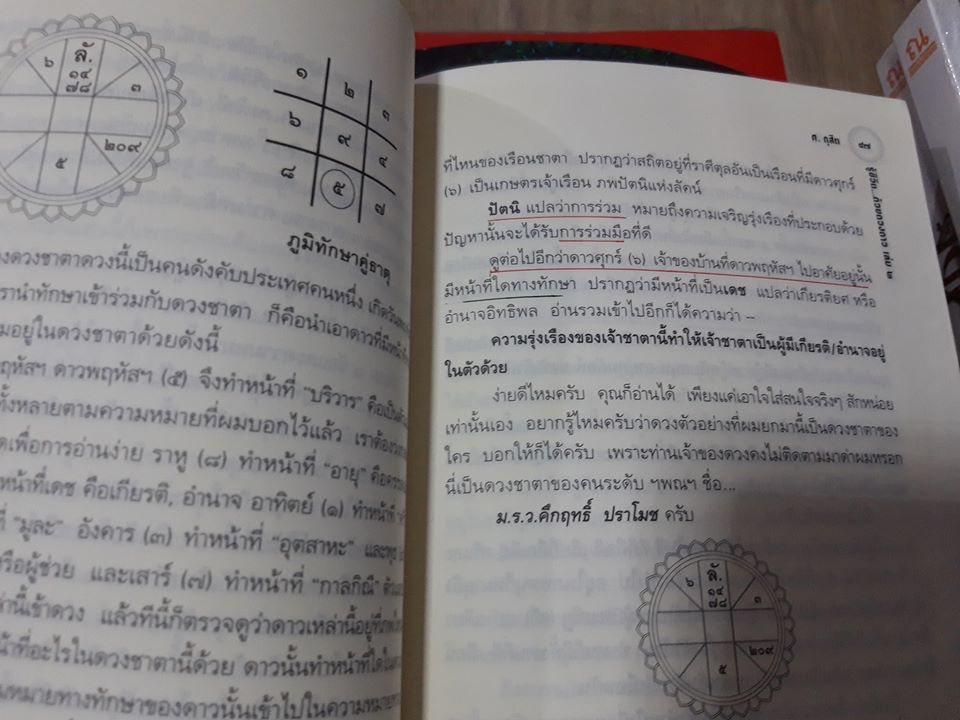 ๖
ลั.
๑๔
๗๘
๓
๒๐๙
๕
๑ ๒ ๓
๖ ๙ ๔
๘ ๕ ๗
ภูมิทักษาคู่ธาตุ
ดวงชาตาดวงนี้เป็นคนดังคับประเทศคนหนึ่ง
รานำทักษาเข้าร่วมกับดวงชาตา ก็คือนำเอาดาวที่
อยู่ในดวงชาตาด้วยดังนี้
ดาวพฤหัสฯ (๕) จึงทำหน้าที่ “บริวาร” คือ
ทั้งหลายตามความหมายที่ผมบอกไว้แล้ว
เพื่อการอ่านง่าย ราหู (๘) ทำหน้าที่ “อายุ” คือ
หน้าที่เดช คือเกียรติ, อำนาจ อาทิตย์ (๑) ทำหน้าที่
“มูละ” อังคาร (๓) ทำหน้าที่ “อุตสาหะ”
หรือผู้ช่วย และเสาร์ (๗) ทำหน้าที่ “กาลกิณี”
นี้เข้าดวง แล้วทีนี้ก็ตรวจดูว่าดาวเหล่านี้อยู่ที่
น้าที่อะไรในดวงชาตานี้ด้วย ดาวนั้นทำหน้าที่ใด
หมายทางทักษาของดาวนั้นเข้าไปในความหมาย
ศ. ดุสิต
๔๗
ที่ไหนของเรือนชาตา ปรากฏว่าสถิตอยู่ที่ราศีตุลอันเป็นเรือนที่มีดาวศุกร์
(๖) เป็นเกษตรเจ้าเรือน ภพปัตนิแห่งลัคน์
ปัตนิ แปลว่าการร่วม หมายถึงความเจริญรุ่งเรืองที่ประกอบด้วย
ปัญหานั้นจะได้รับการร่วมมือที่ดี
ดูต่อไปอีกว่าดาวศุกร์ (๖) เจ้าของบ้านที่ดาวพฤหัสฯ ไปอาศัยอยู่นั้น
มีหน้าที่ใดทางทักษา ปรากฏว่ามีหน้าที่เป็นเดช แปลว่าเกียรติยศ หรือ
อำนาจอิทธิพล อ่านรวมเข้าไปอีกก็ได้ความว่า --
ความรุ่งเรืองของเจ้าชาตานี้ทำให้เจ้าชาตาเป็นผู้มีเกียรติ/อำนาจอยู่
ในตัวด้วย
ง่ายดีไหมครับ คุณก็อ่านได้ เพียงแค่เอาใจใส่สนใจจริงๆ สักหน่อย
เท่านั้นเอง อยากรู้ไหมครับว่าดวงตัวอย่างที่ผมยกมานี้เป็นดวงชาตาของ
ใคร บอกให้ก็ได้ครับ เพราะท่านเจ้าของดวงคงไม่ติดตามมาด่าผมหรอก
นี่เป็นดวงชาตาของคนระดับ ฯพณฯ ชื่อ...
ม.ร.ว.คึกฤทธิ์ ปราโมช ครับ
๒๐๙
๕